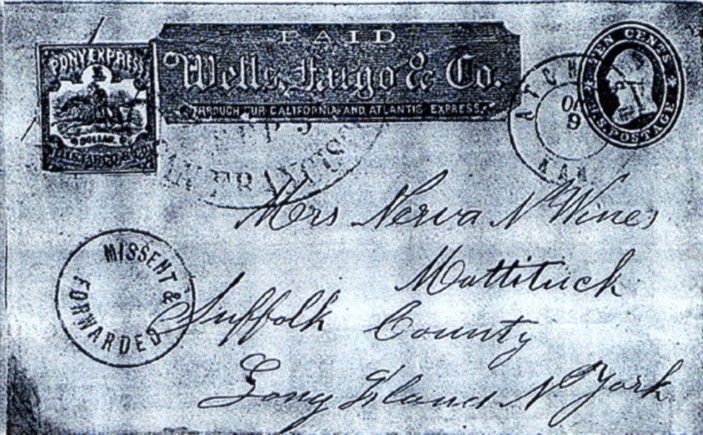 PAID
Wells, Fargo & Co.
THROUGH OUR CALIFORNIA AND ATLANTIC EXPRESS.
PONY EXPRESS
DOLLAR
WELLS FARGO & CO
TEN CENTS
U.S. POSTAGE
SAN FRANCISCO
KAN
9
MISSENT &
FORWARDED
Mrs Nerva N Wines
Mattituck
Suffolk County
Long Island N. York